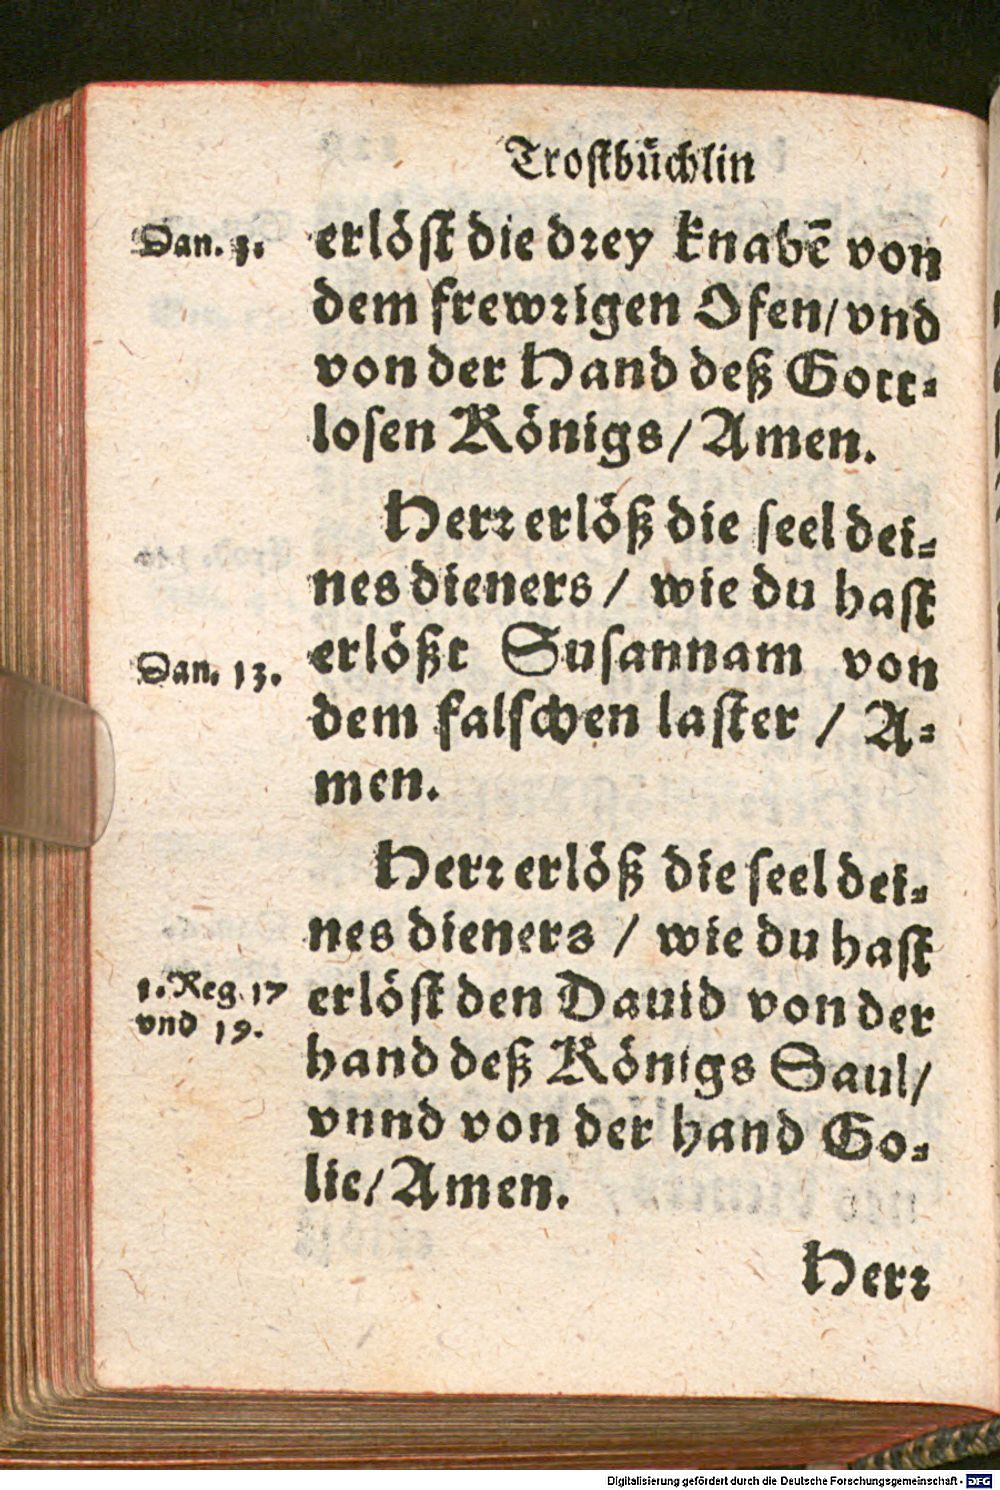 Trostbüchlin
Dan. 3.
erlöst die drey knabē von
dem frewrigen Ofen/ vnd
von der Hand deß Gott-
losen Königs/ Amen.
Herr erlöß die seel dei-
nes dieners/ wie du hast
Dan. 13.
erlößt Susannam von
dem falschen laster / A-
men.
Herr erlöß die seel dei-
nes dieners / wie du hast
1. Reg. 17
vnd 19.
erlöst den Dauid von der
hand deß Königs Saul/
vnnd von der hand Go-
lie/ Amen.
Herr
Digitalisierung gefördert durch die Deutsche Forschungsgemeinschaft - DFG